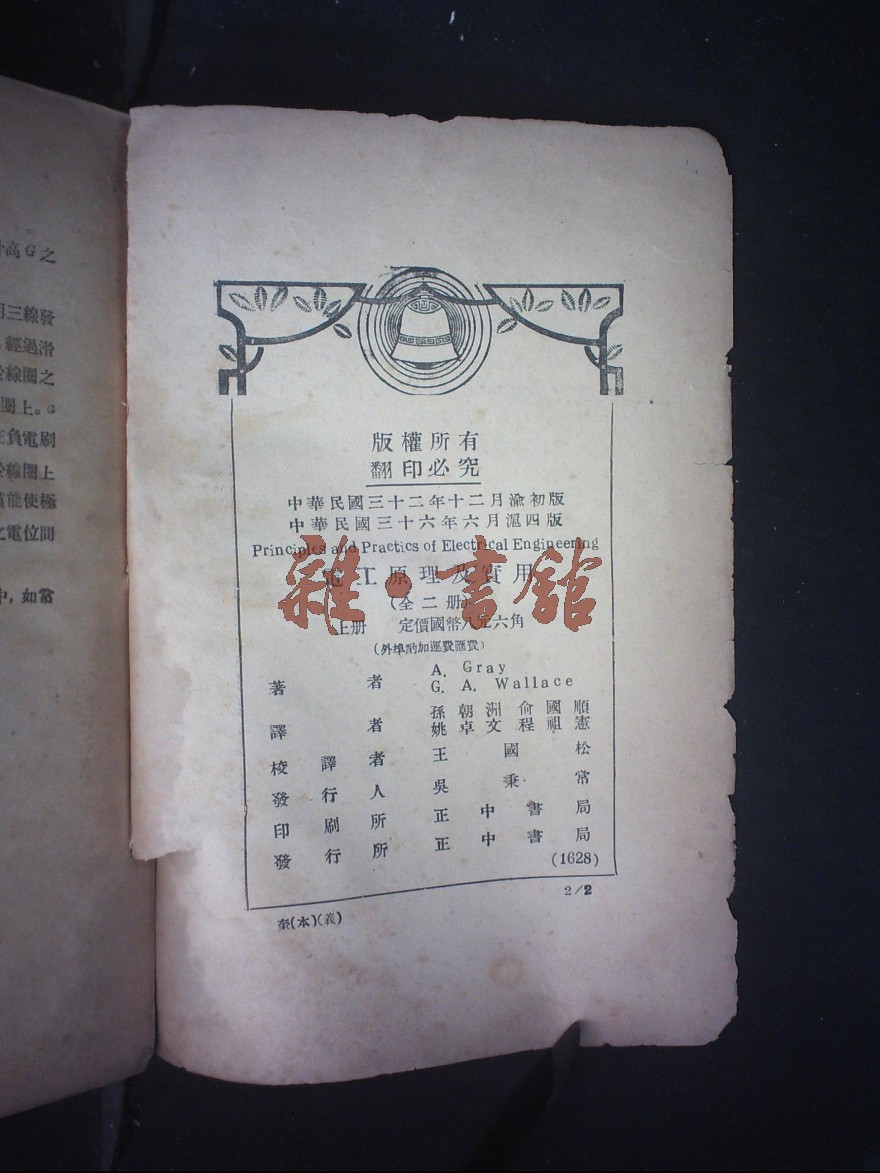 高G之
三線發
經過滑
線圈之
圈上。
負電刷
線圈上
能使極
電位間
中，如當
版權所有
翻印必究
中華民國三十二年十二月渝初版
中華民國三十六年六月滬四版
Principles and Practics of Electrical Engineering
電工原理及實用
雜·書館
(全二册)
上册 定價國幣八元六角
(外埠酌加運費匯費)
著者 A. Gray
G. A. Wallace
譯者 孫朝洲 俞國順
姚卓文 程祖憲
校譯者 王國松
發行人 吳秉常
印刷所 正中書局
發行所 正中書局
(1628)
2/2
(本)(義)